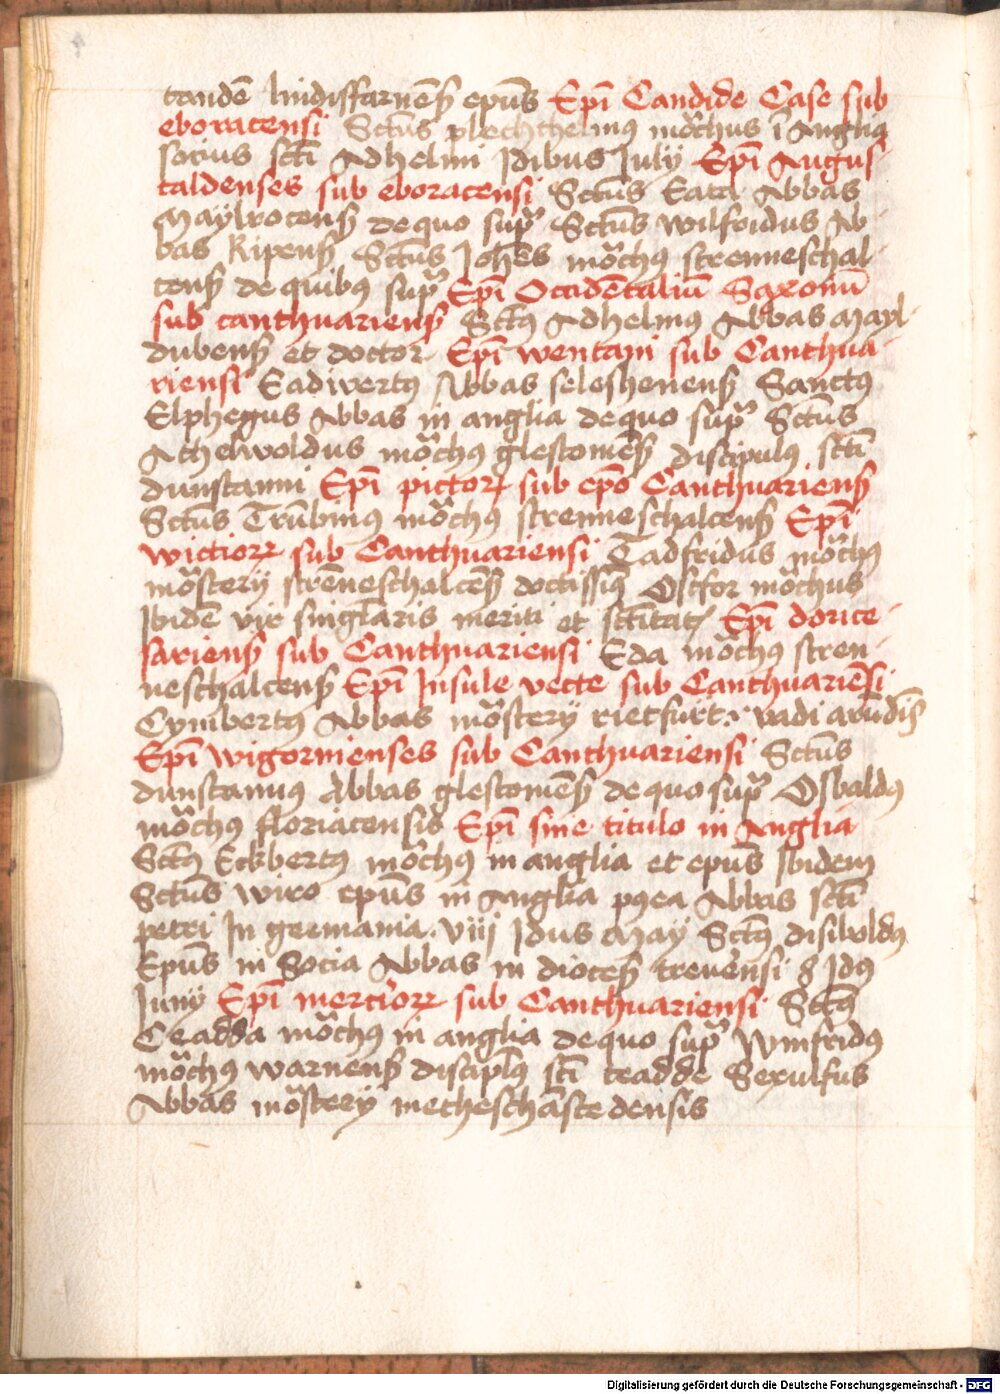 tandē lindisffarnēs̄ epūs Epī Candide Case sub
eboracensi Sctūs plechthelmꝰ mōchus ī Anglia
socius sctī Adhelmi Idibus Julij Epī Augus-
taldenses sub eboracensi Sctūs Eata Abbas
Maylrocens̄ de quo supᵃ Sctūs wilfridus Ab-
bas Ripens̄ Sctūs Johēs mōchꝰ strenneschal-
cens̄ de quibꝰ supᵃ Epī Occidētaliū Saxonū
sub canthuariens̄ Sctꝰ Adhelmꝰ Abbas mayl-
dubens̄ et doctor Epī wentani sub Canthua-
riensi Eadwertꝰ Abbas seleshenens̄ Sanctꝰ
Elphegus Abbas in anglia de quo supᵃ Sctūs
Athelwoldus mōchꝰ glestoniēs̄ discipulꝰ sctī
dunstanni Epī pictoꝝ sub epō Canthuariens̄
Sctūs Trūbinꝰ mōchꝰ strenneschalcens̄ Epī
wictioꝝ sub Canthuariensi Tadfridus mōchꝰ
mōsterij strēneschalcēs̄ doctissīꝰ Ostfor mōchus
Ibidē vir singlaris meriti et sctītatꝭ Epī dorice-
sariens̄ sub Canthuariensi Eda mōchꝰ stren-
neschalcens̄ Epī Insule vecte sub Canthuariēsi
Cymbertꝰ Abbas mōsterij rietfurt .i. vadi arūdīs
Epī wigornienses sub Canthuariensi Sctūs
dunstannꝰ Abbas glestoniēs̄ de quo supᵃ Osbaldꝰ
mōchꝰ floriacensis Epī sine titulo in Anglia
Sctꝰ Eckbertꝰ mōchꝰ in anglia et epūs Ibidem
Sctūs wiro epūs in Anglia pꝰea Abbas sctī
petri In germania. viij Idus May Sctꝰ disiboldꝰ
Epūs in Socia Abbas in dioces̄ treuēnsi 8 Idꝰ
Junij Epī mercioꝝ sub Canthuariensi Sctꝰ
Ceadda mōchꝰ in anglia de quo supᵃ Winfridꝰ
mōchꝰ warnens̄ discipl̄ꝰ sctī ceadde Sexulfus
Abbas mōsterij metheschāstedensis
Digitalisierung gefördert durch die Deutsche Forschungsgemeinschaft - DFG